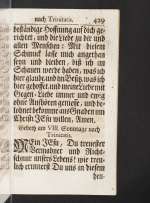 nach Trinitatis. 429
beständige Hoffnung auf dich ge-
richtet, und die Liebe zu dir und
allen Menschen: Mit diesem
Schmuck lasse mich angethan
seyn und bleiben, biß ich im
Schauen werde haben, was ich
hier glaube, und im Besitz, was ich
hier gehoffet, und meine Liebe mit
Gegen-Liebe immer und ewig
ohne Aufhören genieße, und be-
lohnet bekomme aus Gnaden um
Christi JEsu willen, Amen.
Gebeth am VIII. Sonntage nach
Trinitatis.
MEin JESu, Du treuester
Vermahner und Richt-
schnur unsers Lebens! wie treu-
lich erinnerst Du uns in diesem